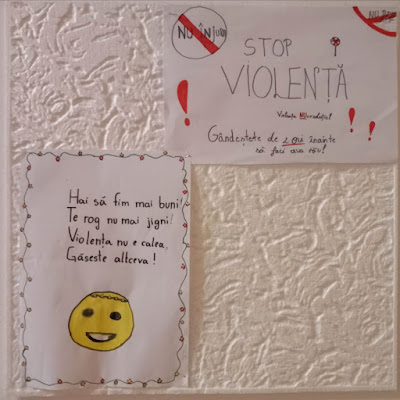 NU ÎNJUR
STOP
VIOLENȚĂ
Violența NU e soluția!
Gândește-te de 2 ori înainte
să faci ceva rău!
NU
Hai să fim mai buni!
Te rog nu mai jigni!
Violența nu e calea,
Găseste altceva!